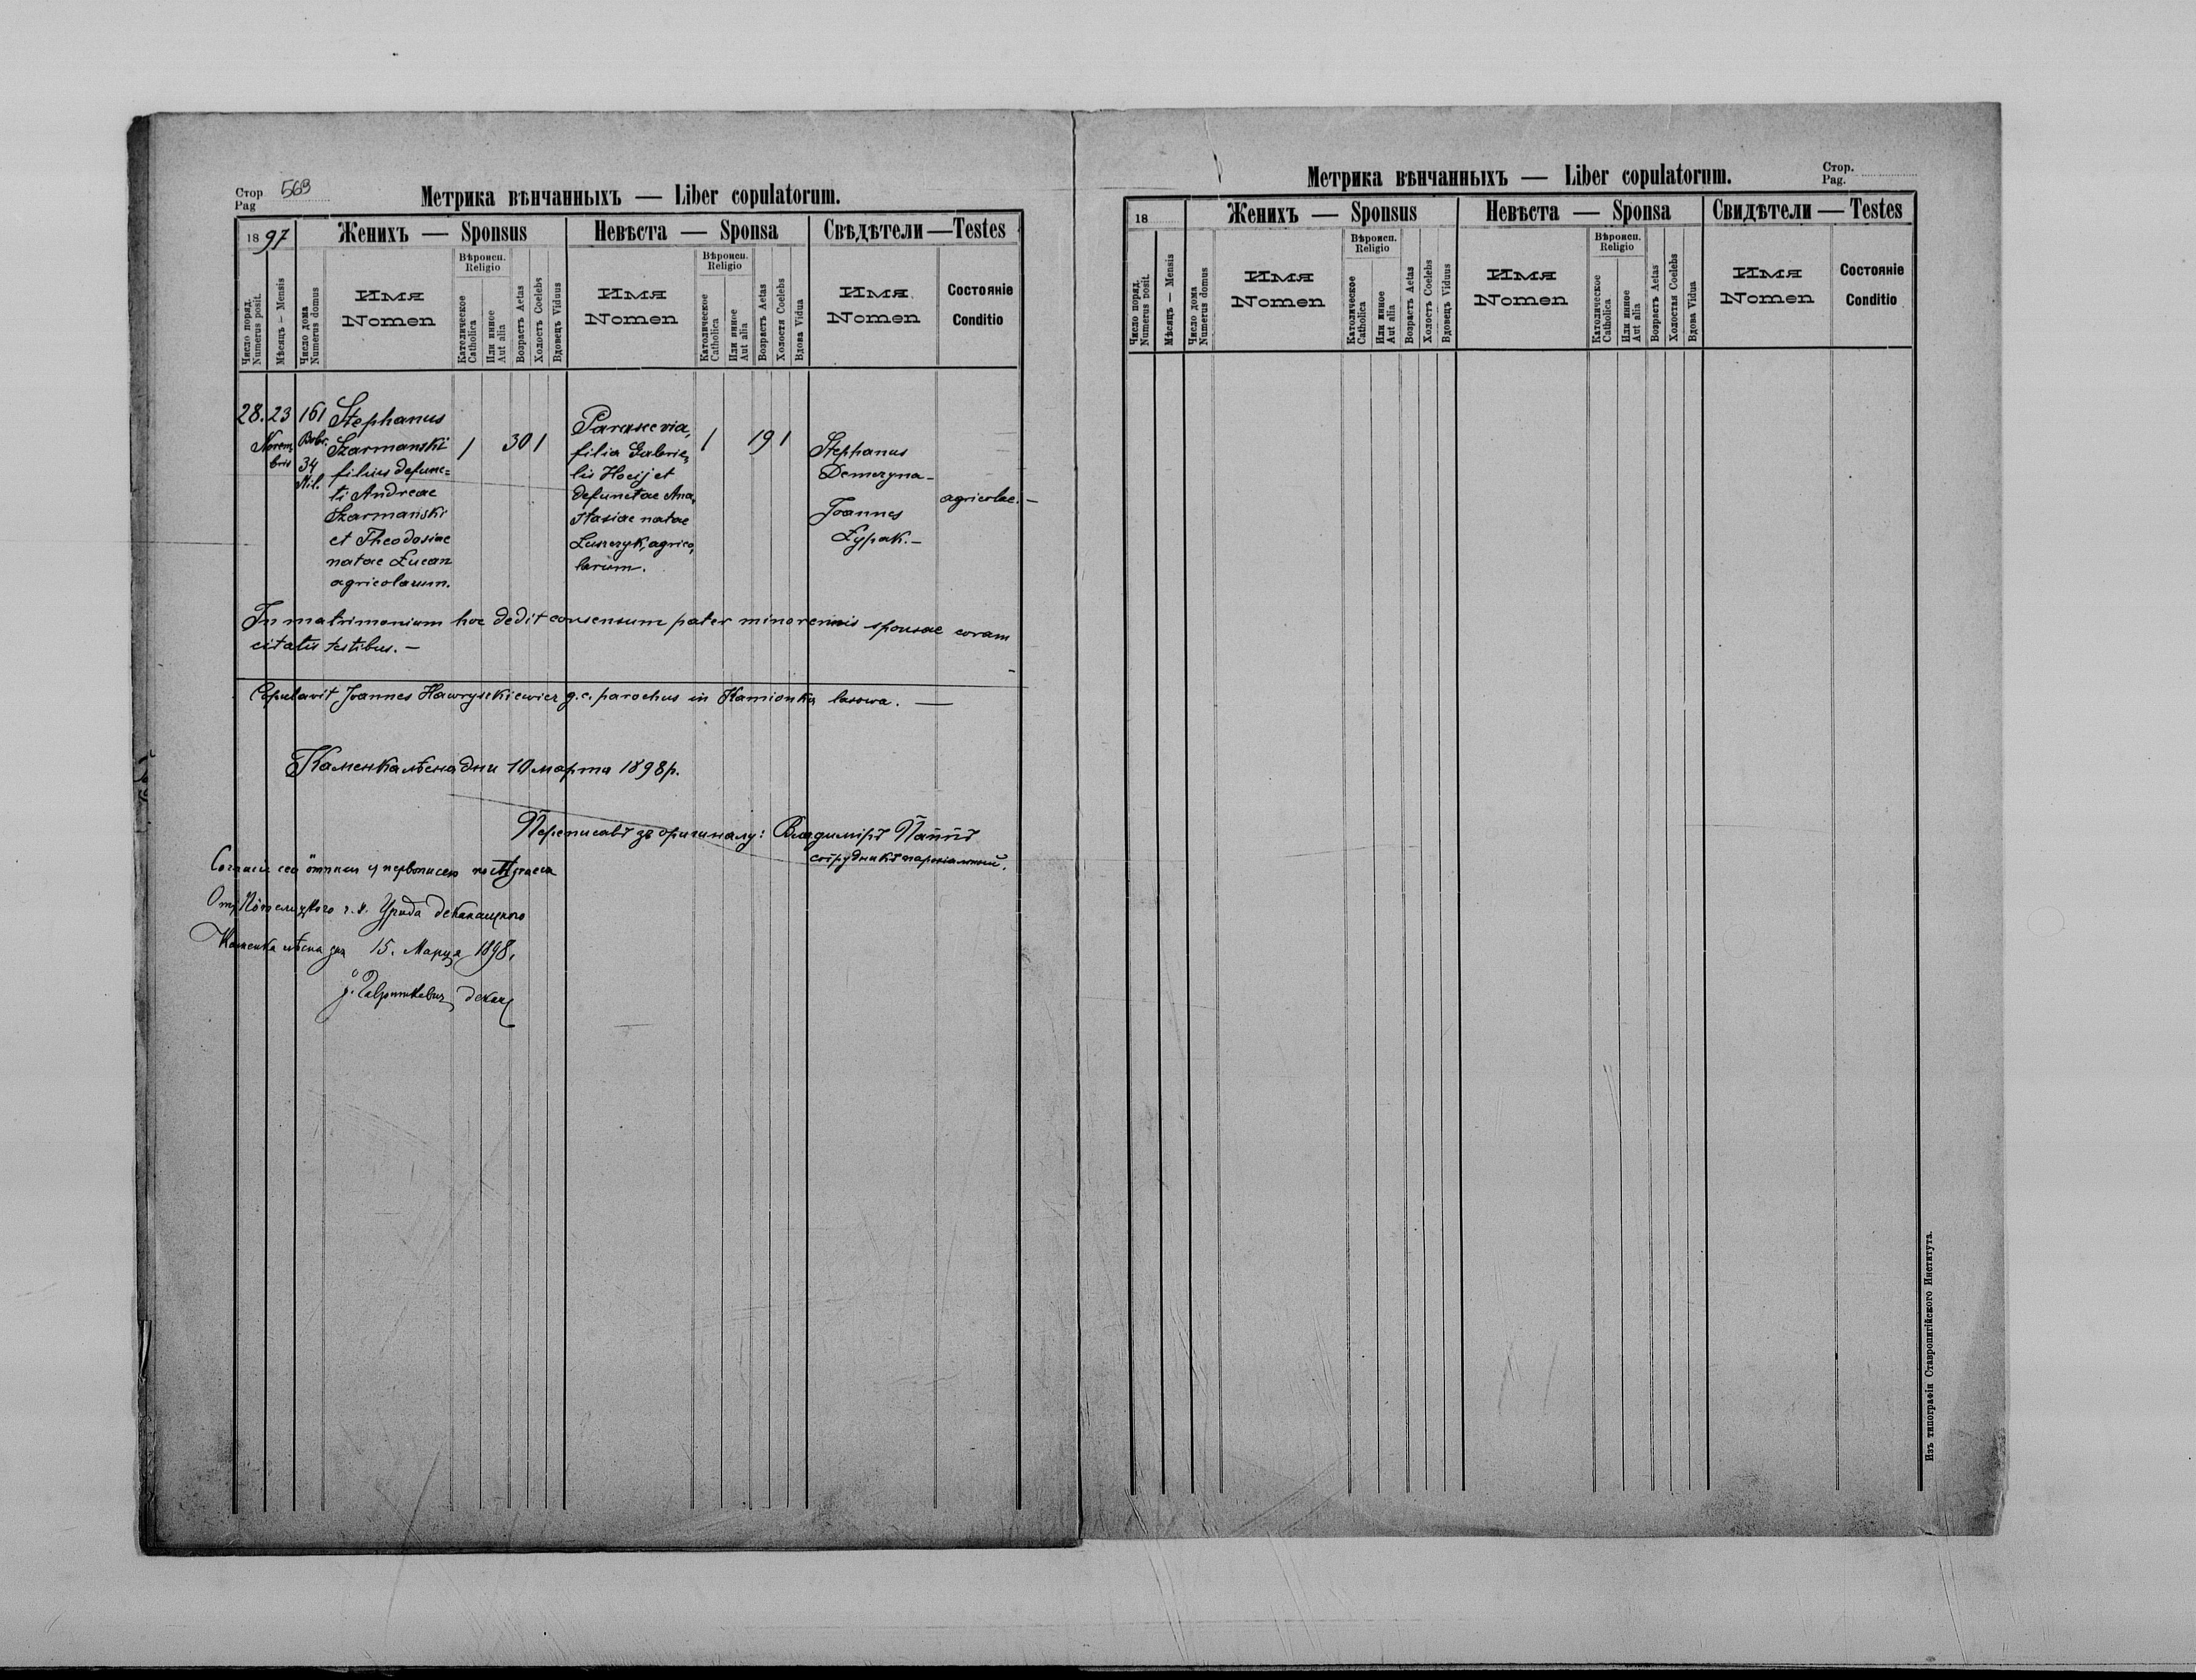 Стор. Pag 563
Метрика вѣнчанныхъ — Liber copulatorum.
1897
Женихъ — Sponsus
Невѣста — Sponsa
Свѣдѣтели — Testes
Число поряд. Numerus posit.
Мѣсяцъ — Mensis
Число дома Numerus domus
Имя Nomen
Вѣроисп. Religio
Католическое Catholica
Или инное Aut alia
Возрастъ Aetas
Холостъ Coelebs
Вдовецъ Viduus
Имя Nomen
Вѣроисп. Religio
Католическое Catholica
Или инное Aut alia
Возрастъ Aetas
Холостя Coelebs
Вдова Vidua
Имя Nomen
Состояніе Conditio
28. 23 Novembris
161 Bobr. 34 Nil.
Stephanus
Szarmanski
filius defunc=
ti Andreae
Szarmański
et Theodosiae
natae Łucan
agricolarum.
1 30 1
Parascevia,
filia Gabrie,,
lis Hocij et
defunctae Ana,,
stasiae natae
Luszczyk, agrico,,
larum.
1 19 1
Stephanus
Demczyna –
Joannes
Zypak. –
agricolae. –
In matrimonium hoc dedit consensum pater minorennis sponsae coram
citatis testibus. –
Copulavit Joannes Hawryszkiewicz g. c. parochus in Kamionka lasowa. —
Каменка лѣсна дни 10 марта 1898 р.
Переписавъ зъ оригиналу: Владиміръ Паппъ
сотрудникъ парохіальный.
Уряда деканацкого
Каменка лѣсна дня 15. Марця 1898.
Гавришкевич декан
Метрика вѣнчанныхъ — Liber copulatorum.
Стор. Pag.
18
Женихъ — Sponsus
Невѣста — Sponsa
Свидѣтели — Testes
Число поряд. Numerus posit.
Мѣсяцъ — Mensis
Число дома Numerus domus
Имя Nomen
Вѣроисп. Religio
Католическое Catholica
Или инное Aut alia
Возрастъ Aetas
Холостъ Coelebs
Вдовецъ Viduus
Имя Nomen
Вѣроисп. Religio
Католическое Catholica
Или инное Aut alia
Возрастъ Aetas
Холостая Coelebs
Вдова Vidua
Имя Nomen
Состояніе Conditio
Изъ типографіи Ставропигійского Института.